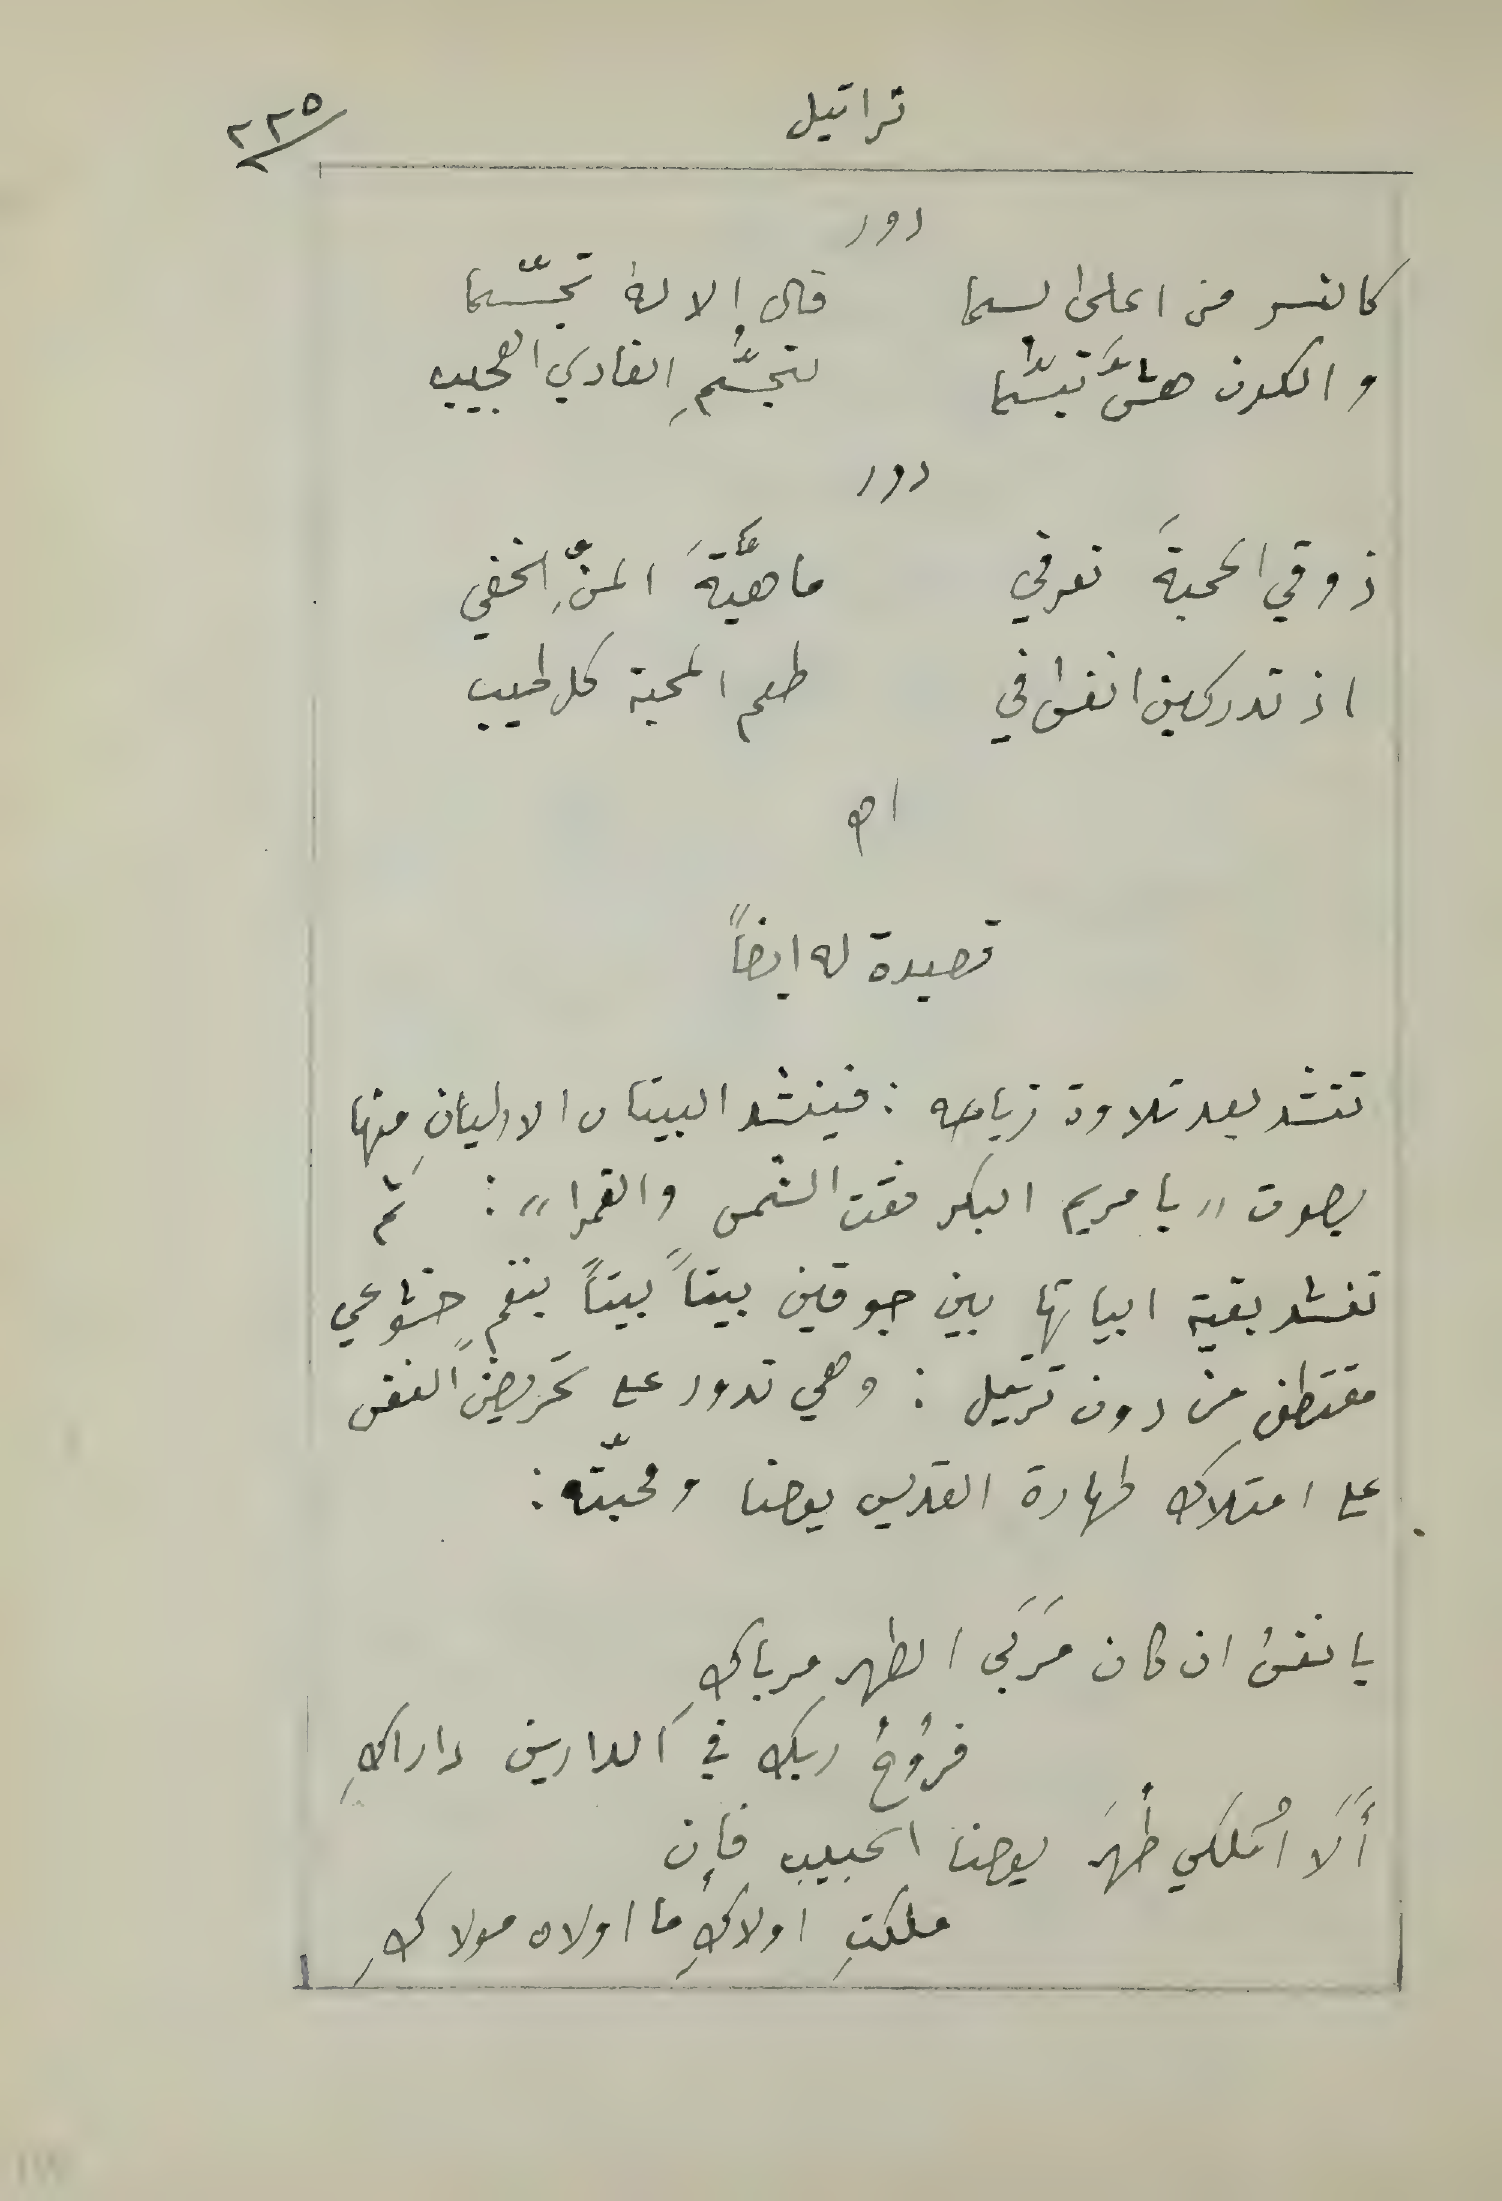 تراتيل
٢٢٥
دور
كالنسر من اعلى السما قال الالهُ تجسّما
والكون هشَّ تبسُّما لتجسُّمِ الفادي العجيب
دور
ذوقي المحبةَ تعرفي ماهيَّةَ المنِّ الخفي
اذ تدركين انفسُ في طعم المحبة كل طيب
اه
قصيدة له ايضاً
تنشد بعد تلاوة زياحه : فينشد البيتان الاوليان منها
بصوت "يا مريم البكر فقت الشمس والقمرا" : ثم
تنشد بقية ابياتها بين جوقين بيتاً بيتاً بنغمٍ خشوعي
مقتطف من دون ترتيل : وهي تدور على تحريض النفس
على امتلاك طهارة القديس يوحنا ومحبّته :
يا نفسُ ان كان مَرَبَى الطهرِ مرباكِ
فرُوحُ ربك في الدارين داراكِ
أَلَا امُلكي طُهرَ يوحنا الحبيب فإن
ملكتِ اولاكِ ما اولاه مولاكِ